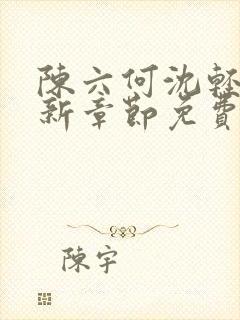 陳六何沈輕
新章節免費
陳宇